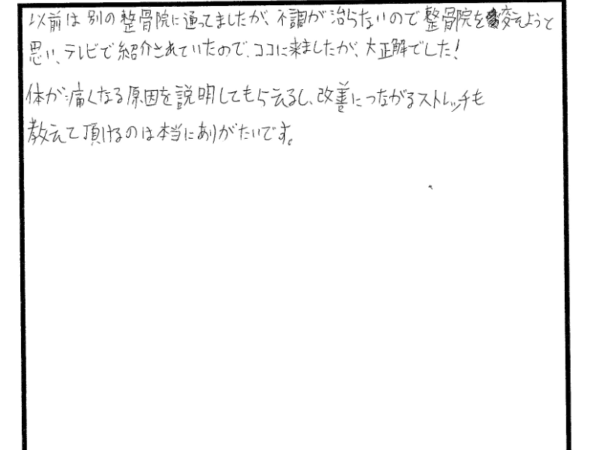 以前は別の整骨院に通ってましたが、不調が治らないので整骨院を変えようと
思い、テレビで紹介されていたので、ココに来ましたが、大正解でした!
体が痛くなる原因を説明してもらえるし、改善につながるストレッチも
教えて頂けるのは本当にありがたいです。